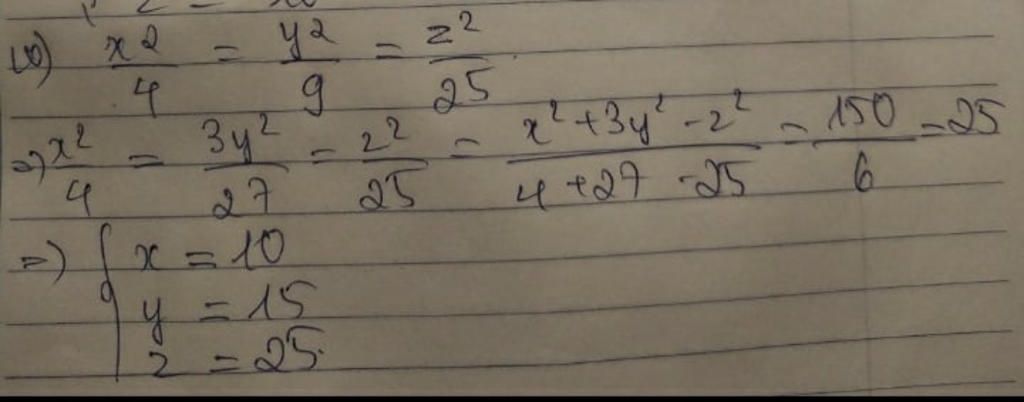 b) x²/4 = y²/9 = z²/25
=> x²/4 = 3y²/27 = z²/25 = x²+3y²-z²/4+27-25 = 150/6 = 25
=> { x = 10
y = 15
z = 25